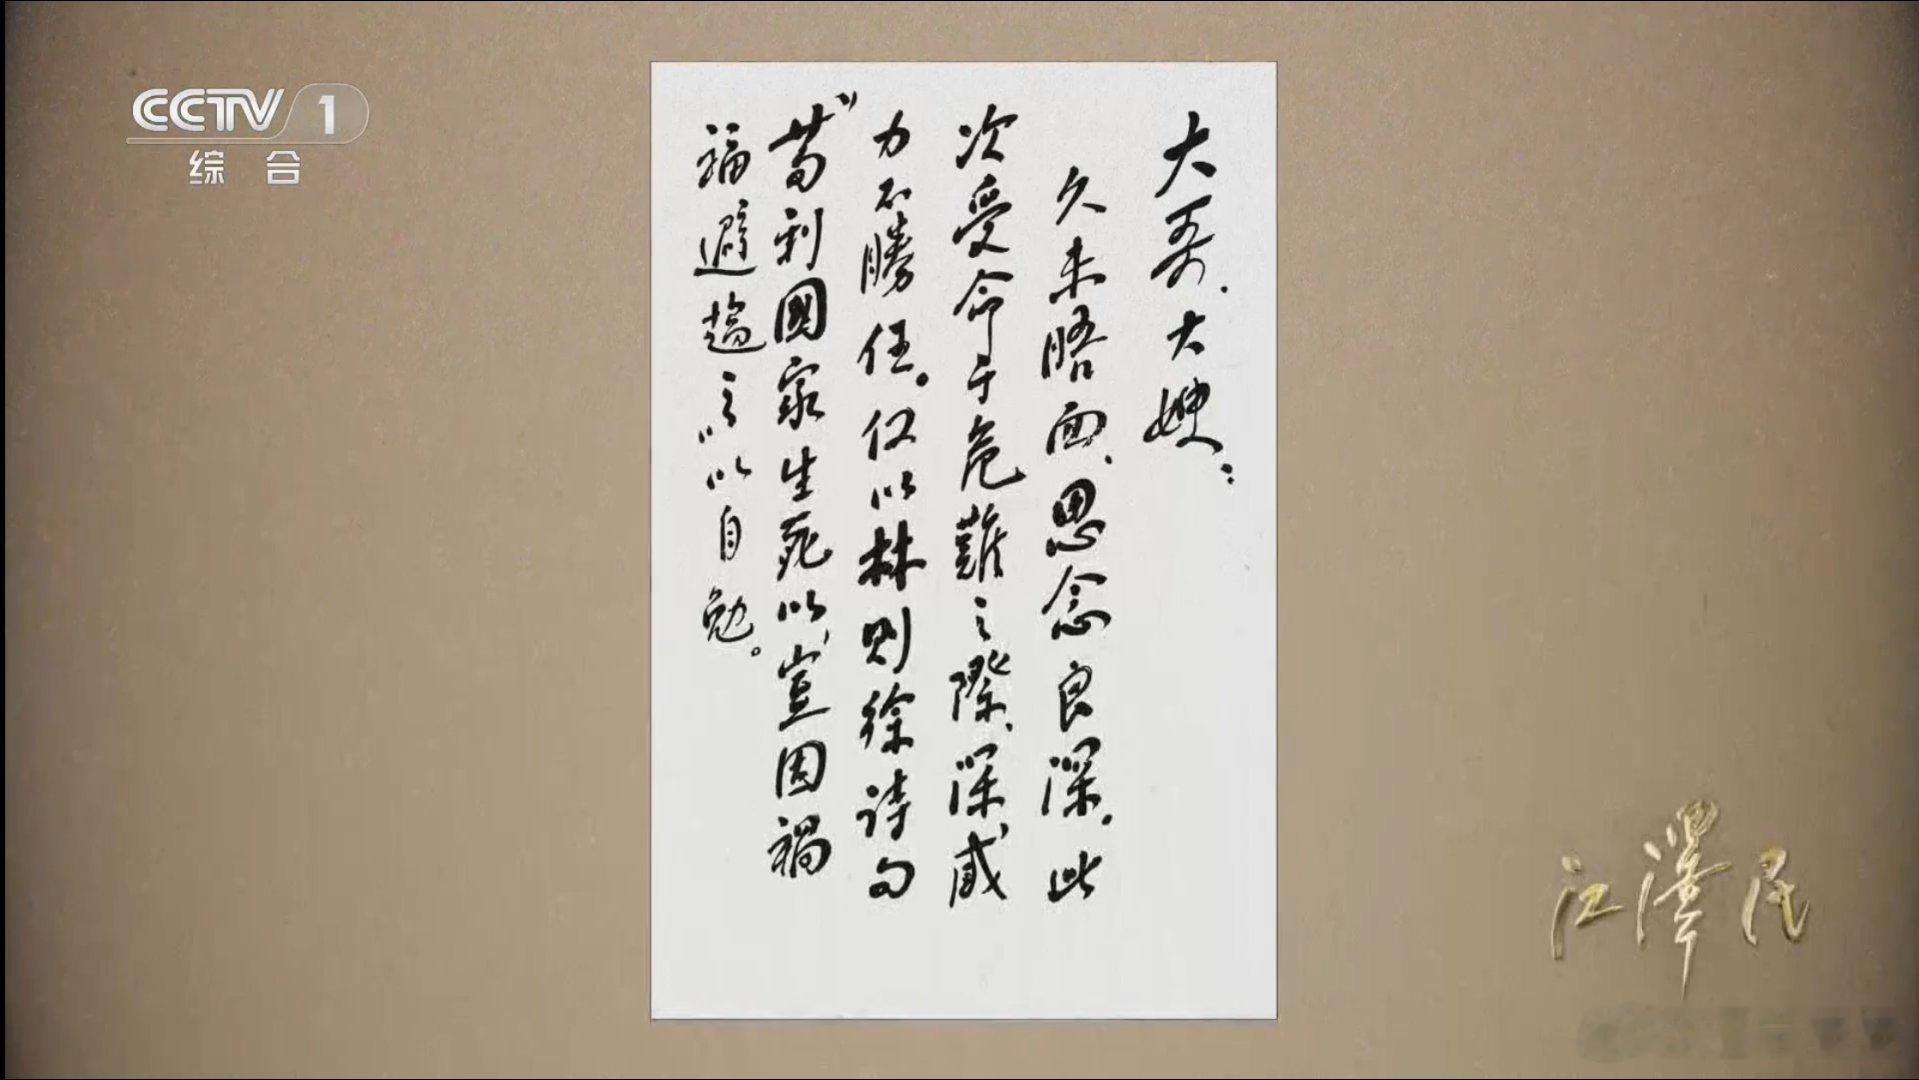 CCTV 1
综合
大哥、大嫂：
久未晤面、思念良深。此
次受命于危難之際、深感
力不勝任。仅以林则徐诗句
“苟利國家生死以，豈因禍
福避趨之”以自勉。
江澤民